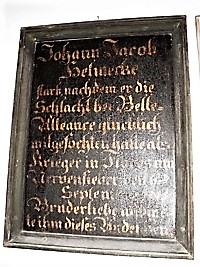 Johann Jacob
Helmerke
starb nachdem er die
Schlacht bei Belle-
Alleance glücklich
mitgefochten hatte als
Krieger in
Nervenfieber
Septem
Bruderliebe
te ihm dieses